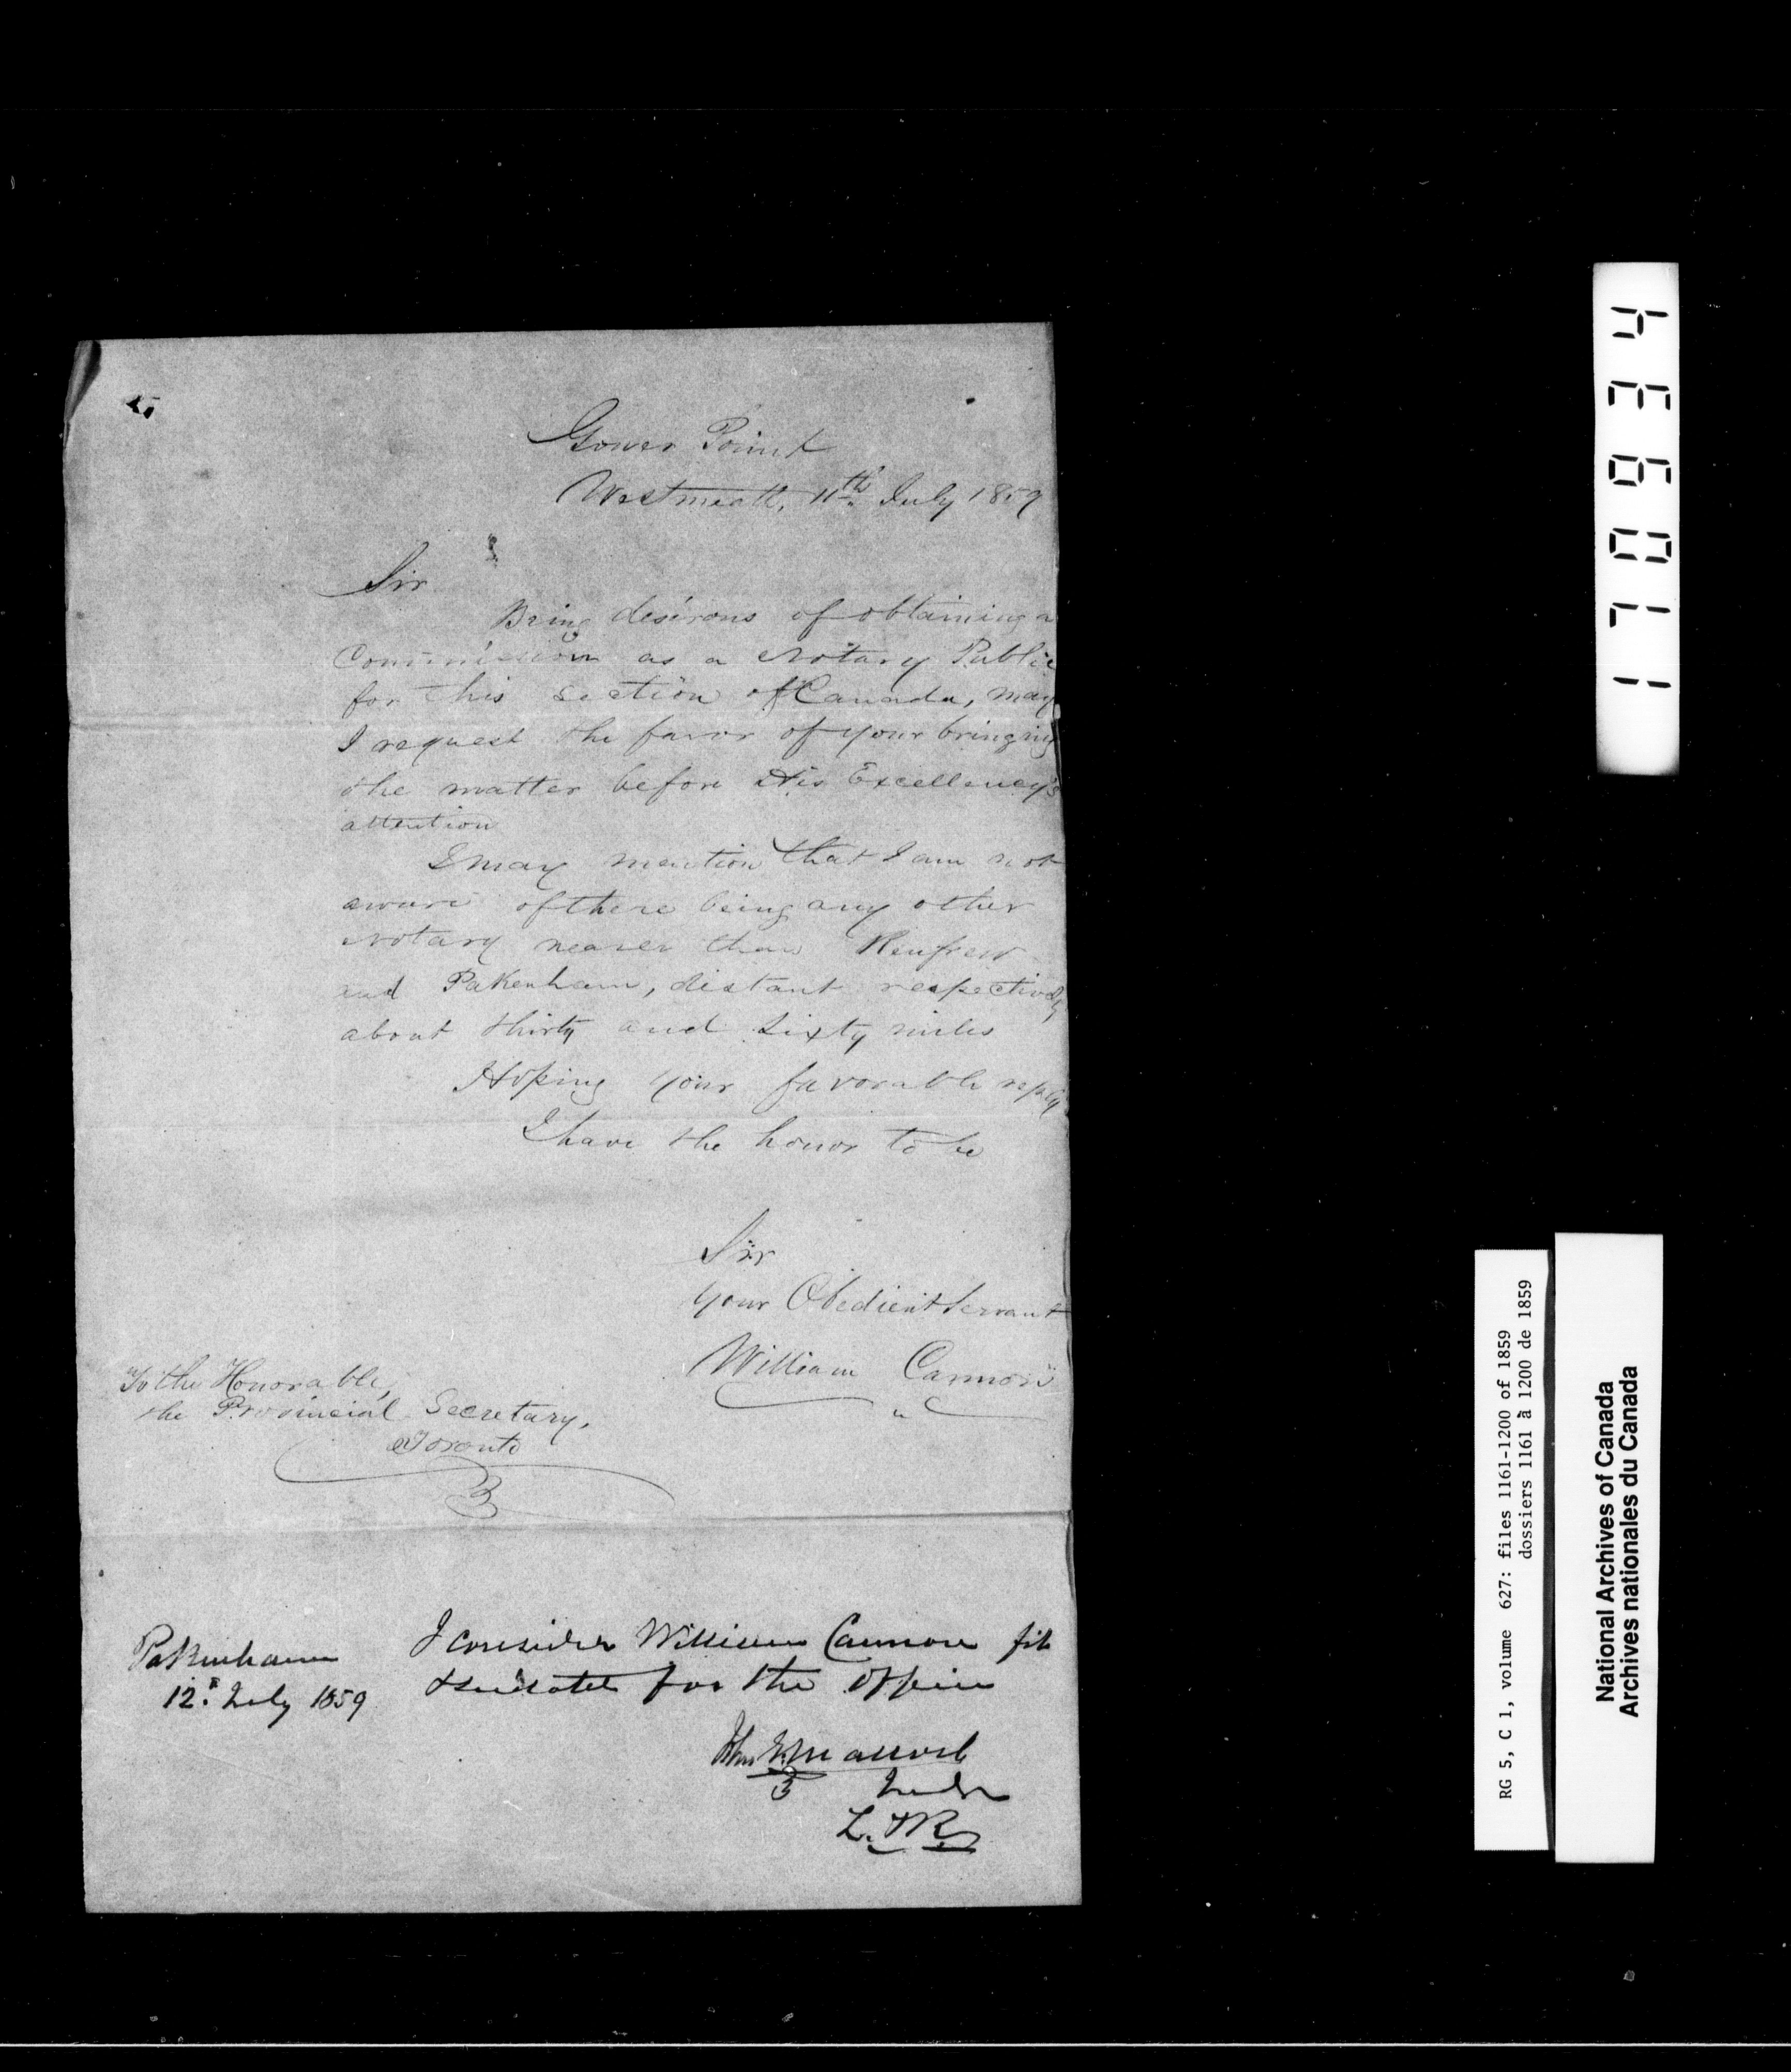 Gower Point
Westmeath, 11th July 1859
Sir
Being desirous of obtaining a
Commission as a Notary Public
for this section of Canada, may
I request the favor of your bringing
the matter before His Excellency's
attention
I may mention that I am not
aware of there being any other
Notary nearer than Renfrew
and Pakenham, distant respectively
about thirty and sixty miles
Hoping your favorable reply
I have the honor to be
Sir
Your Obedient Servant
William Cannon
To the Honorable,
the Provincial Secretary,
Toronto
Pakenham
12th July 1859
I consider William Cannon fit
& suitable for the office
L. & R.
174
170934
RG 5, C 1, volume 627: files 1161-1200 of 1859
dossiers 1161 à 1200 de 1859
National Archives of Canada
Archives nationales du Canada